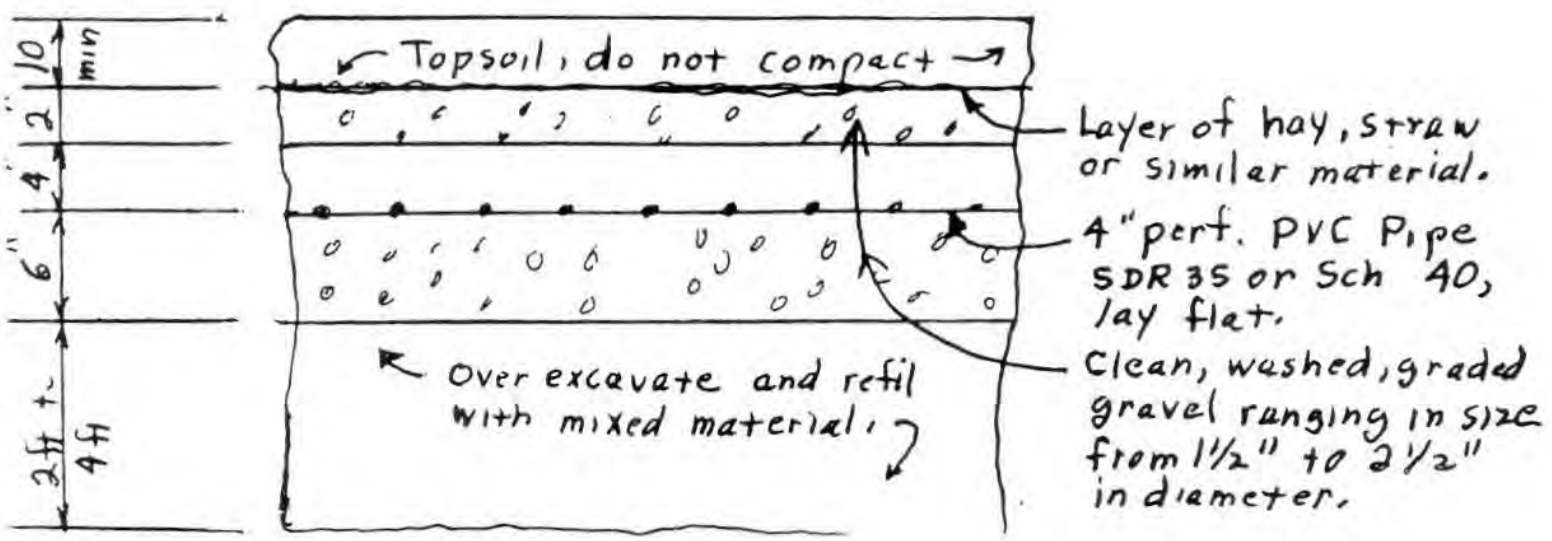 10"
min
2"
4"
6"
2ft to
4ft
Topsoil, do not compact
Over excavate and refil
with mixed material.
Layer of hay, straw
or similar material.
4" perf. PVC Pipe
SDR 35 or Sch 40,
lay flat.
Clean, washed, graded
gravel ranging in size
from 1 1/2" to 2 1/2"
in diameter.